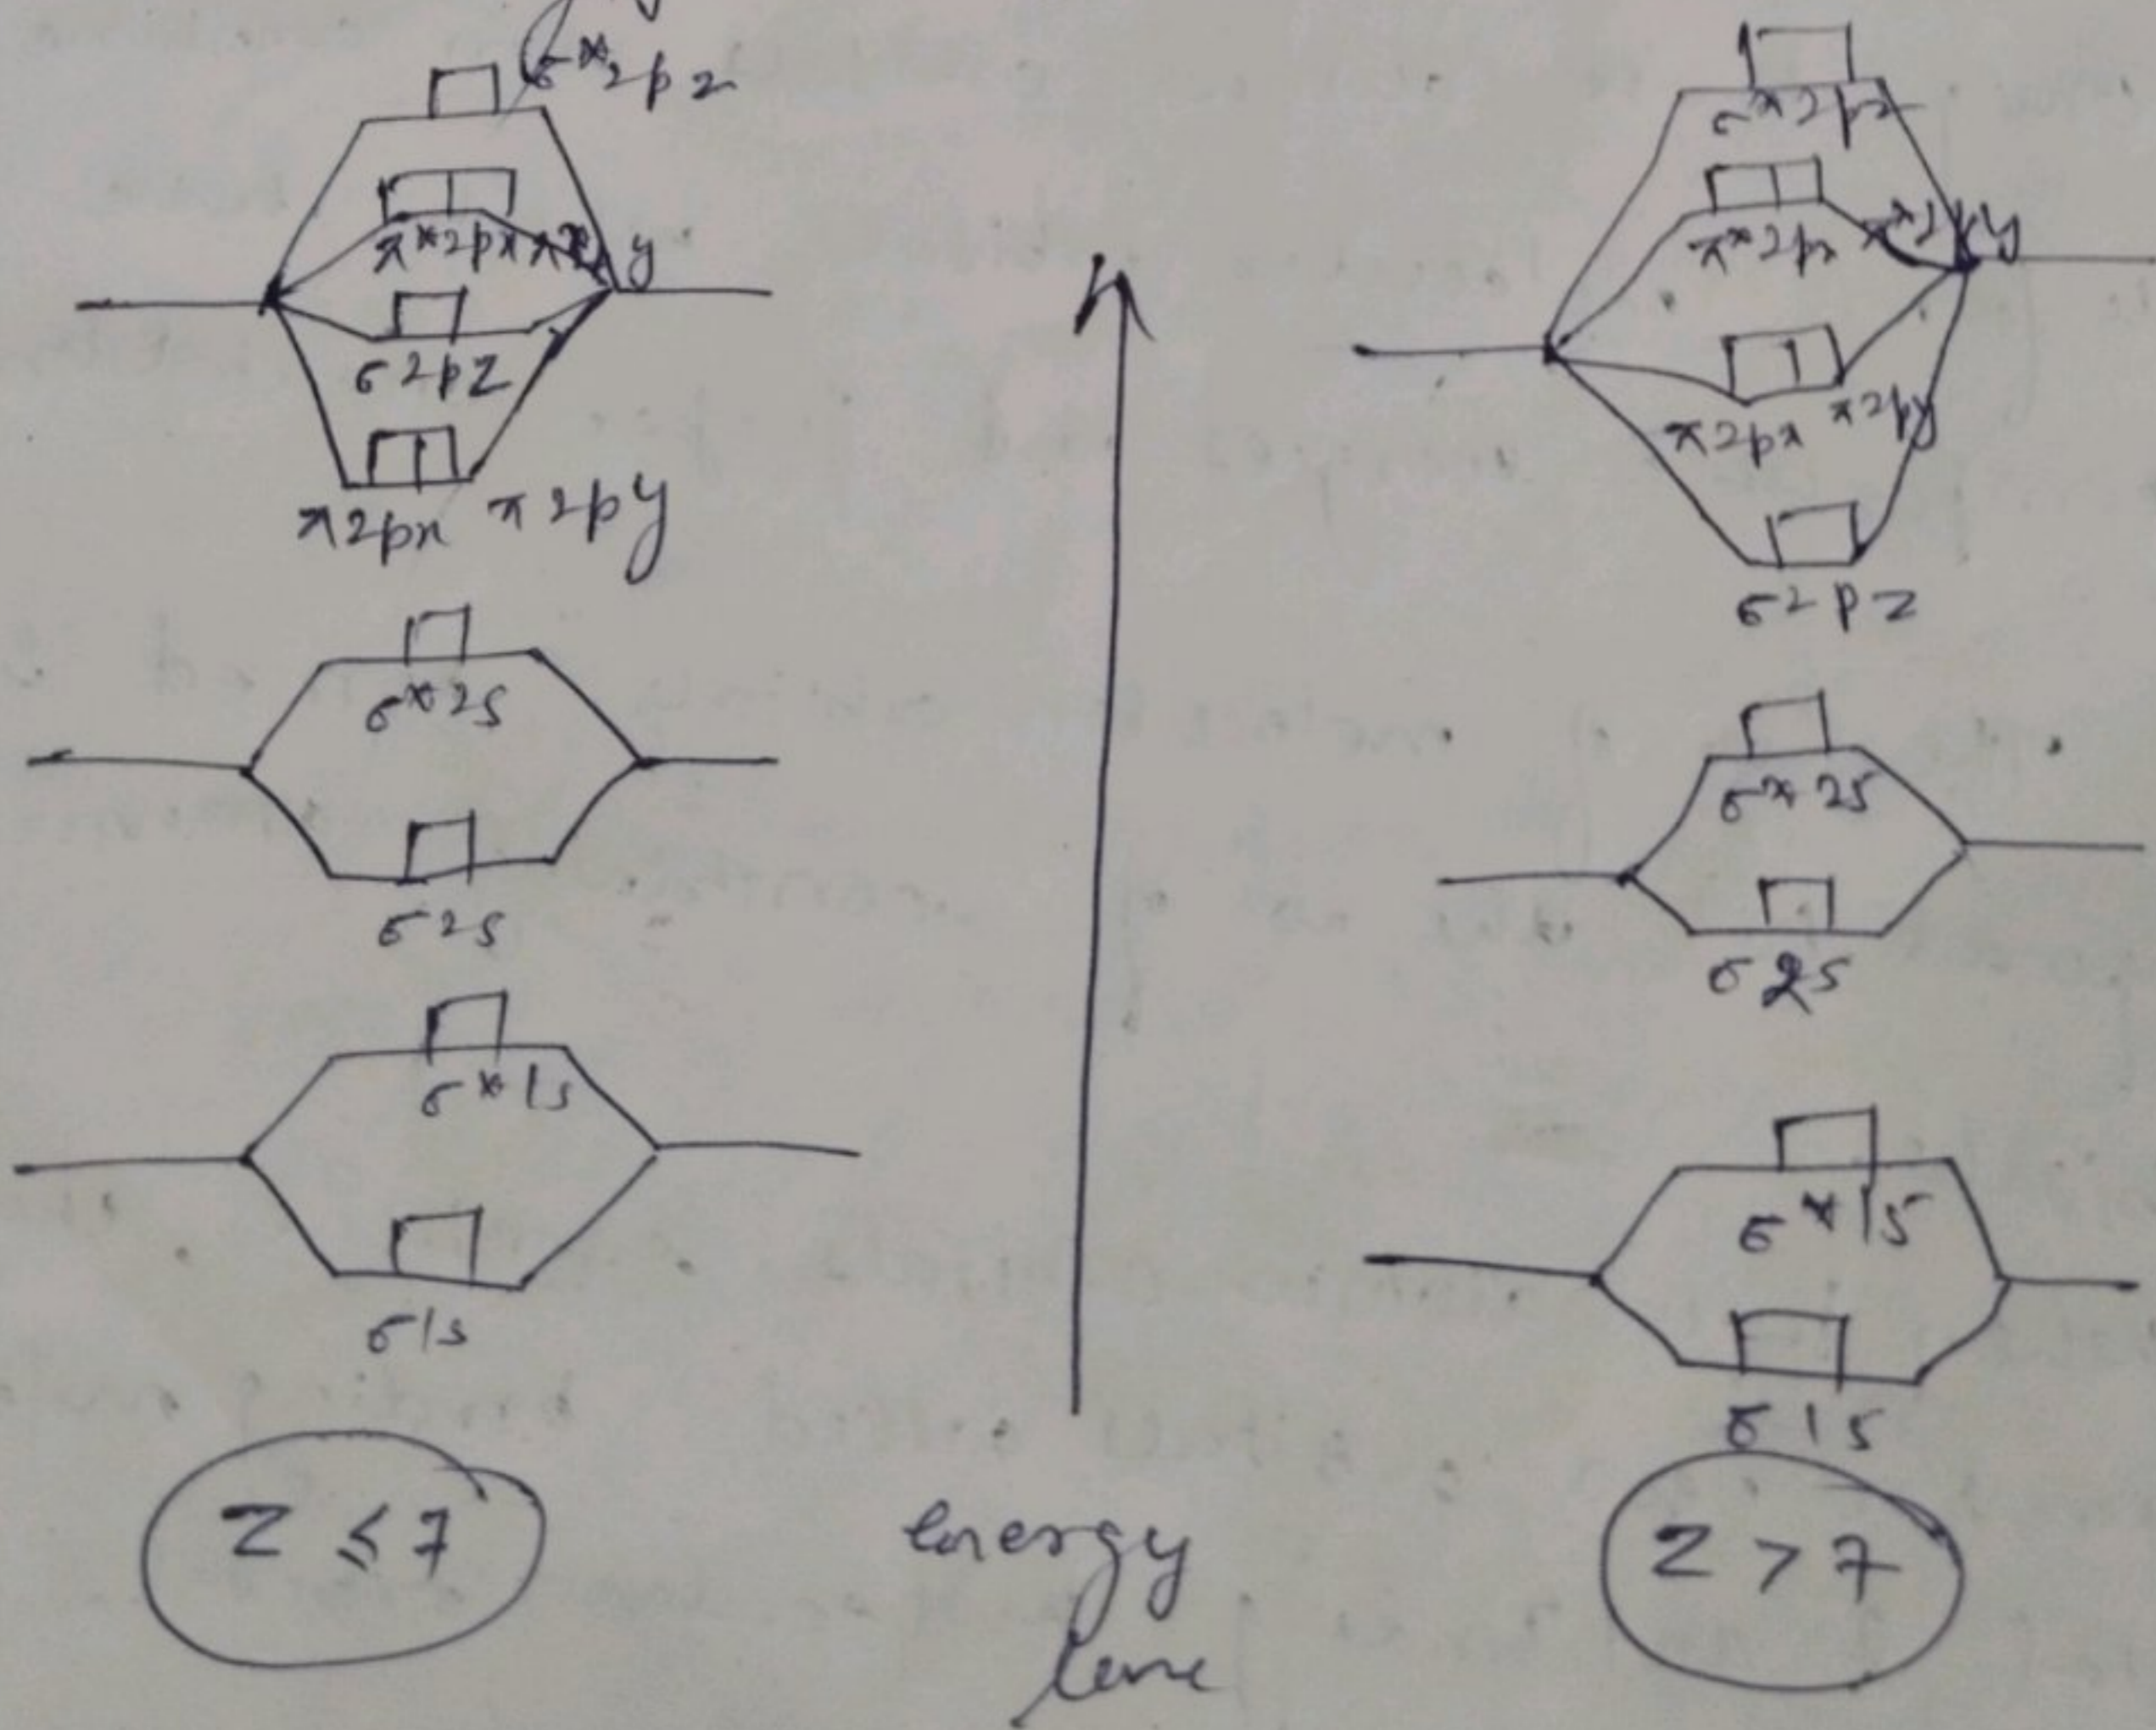 σ*2pz
π*2px π*2py
σ2pz
π2px π2py
σ*2s
σ2s
σ*1s
σ1s
Z ≤ 7
energy
σ*2pz
π*2px π*2py
π2px π2py
σ2pz
σ*2s
σ2s
σ*1s
σ1s
Z > 7